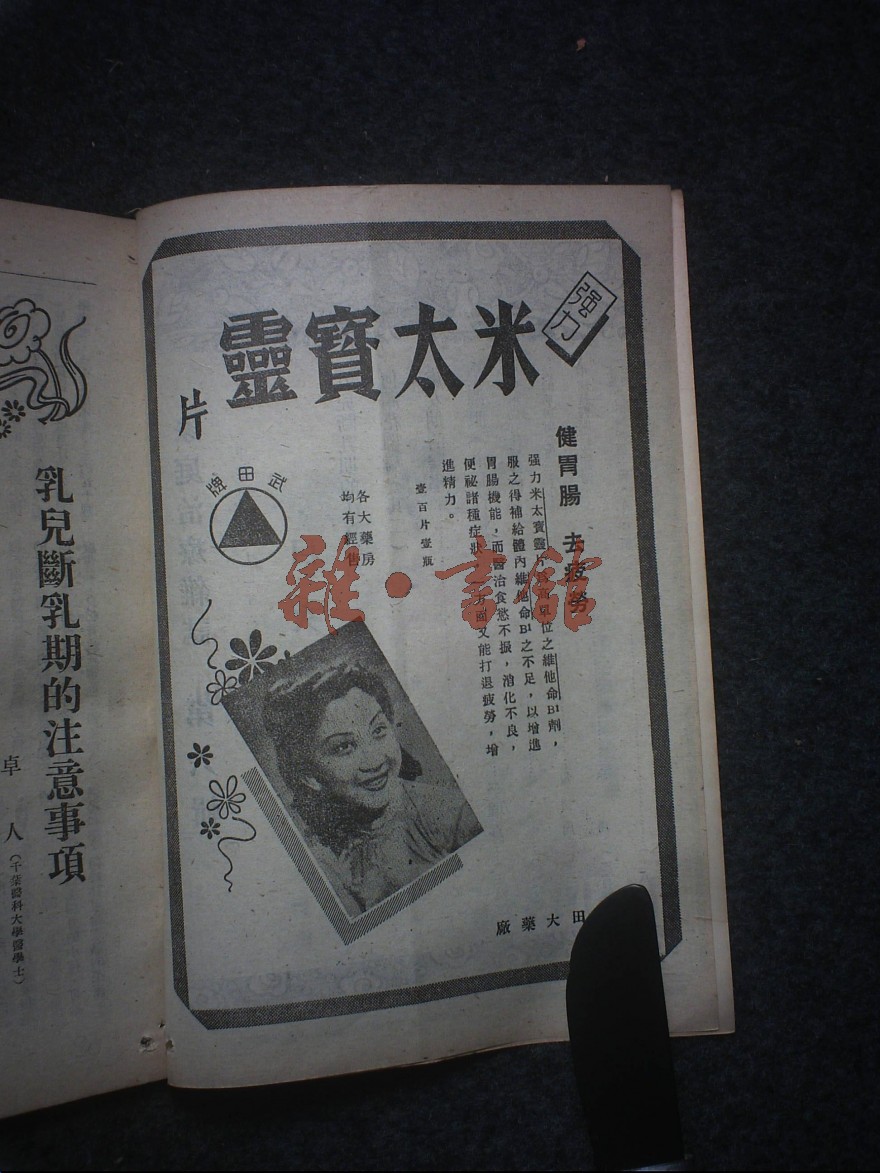 强力
米太寶靈
片
健胃腸 去疲勞
强力米太寶靈片爲高單位之維他命B1劑，
服之得補給體內維他命B1之不足，以增進
胃腸機能，而醫治食慾不振，消化不良，
便祕諸種症狀，方面又能打退疲勞，增
進精力。
壹百片壹瓶
各大藥房
均有經售
武田牌
田大藥廠
雜·書館
乳兒斷乳期的注意事項
卓人（千葉醫科大學醫學士）